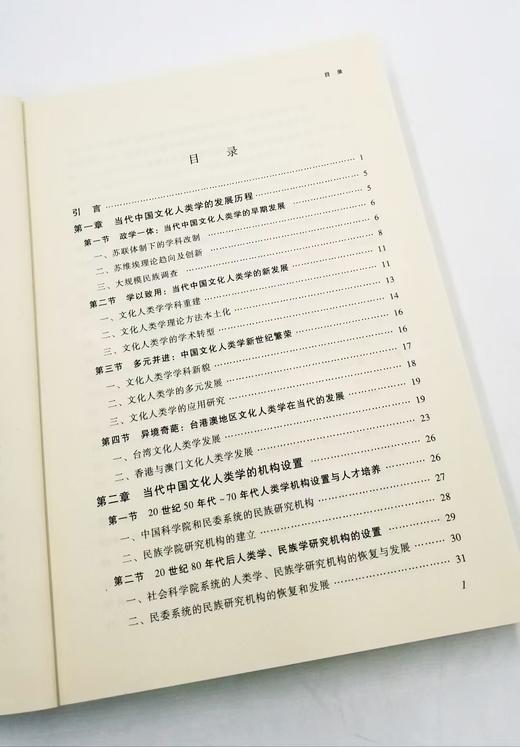 目 录
目 录
引 言 …… 1
第一章 当代中国文化人类学的发展历程 …… 5
第一节 政学一体：当代中国文化人类学的早期发展 …… 5
一、苏联体制下的学科改制 …… 6
二、苏维埃理论趋向及创新 …… 6
三、大规模民族调查 …… 8
第二节 学以致用：当代中国文化人类学的新发展 …… 11
一、文化人类学学科重建 …… 11
二、文化人类学理论方法本土化 …… 13
三、文化人类学的学术转型 …… 14
第三节 多元并进：中国文化人类学新世纪繁荣 …… 16
一、文化人类学学科新貌 …… 16
二、文化人类学的多元发展 …… 17
三、文化人类学的应用研究 …… 18
第四节 异境奇葩：台港澳地区文化人类学在当代的发展 …… 19
一、台湾文化人类学发展 …… 19
二、香港与澳门文化人类学发展 …… 23
第二章 当代中国文化人类学的机构设置 …… 26
第一节 20世纪50年代-70年代人类学机构设置与人才培养 …… 26
一、中国科学院和民委系统的民族研究机构 …… 27
二、民族学院研究机构的建立 …… 28
第二节 20世纪80年代后人类学、民族学研究机构的设置 …… 29
一、社会科学院系统的人类学、民族学研究机构的恢复与发展 …… 30
二、民委系统的民族研究机构的恢复和发展 …… 31
1